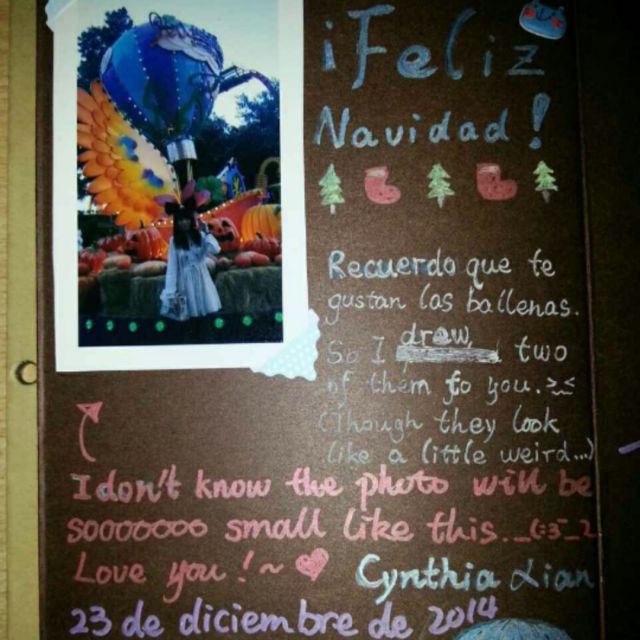 ¡Feliz
Navidad!
Recuerdo que te
gustan las ballenas.
So I drew two
of them fo you. >~<
(Though they look
like a little weird...)
I don't know the photo will be
sooooooo small like this.
Love you!~
Cynthia Lian
23 de diciembre de 2014